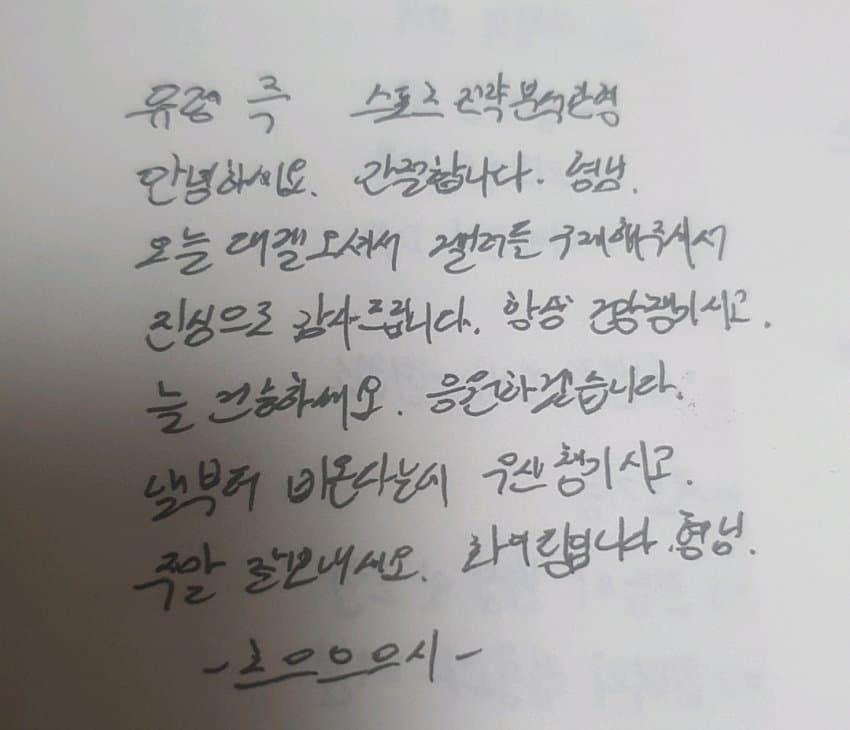 유동 즉 스포츠 전략분석관형
안녕하세요. 간절합니다. 형님.
오늘 대겔오셔서 갤러들 구제해주셔서
진심으로 감사드립니다. 항상 건강챙기시고.
늘 건승하세요. 응원하겠습니다.
낼부터 비온다는데 우산 챙기시고.
주말 잘보내세요. 화이팅입니다.형님.
-흐으으으시-